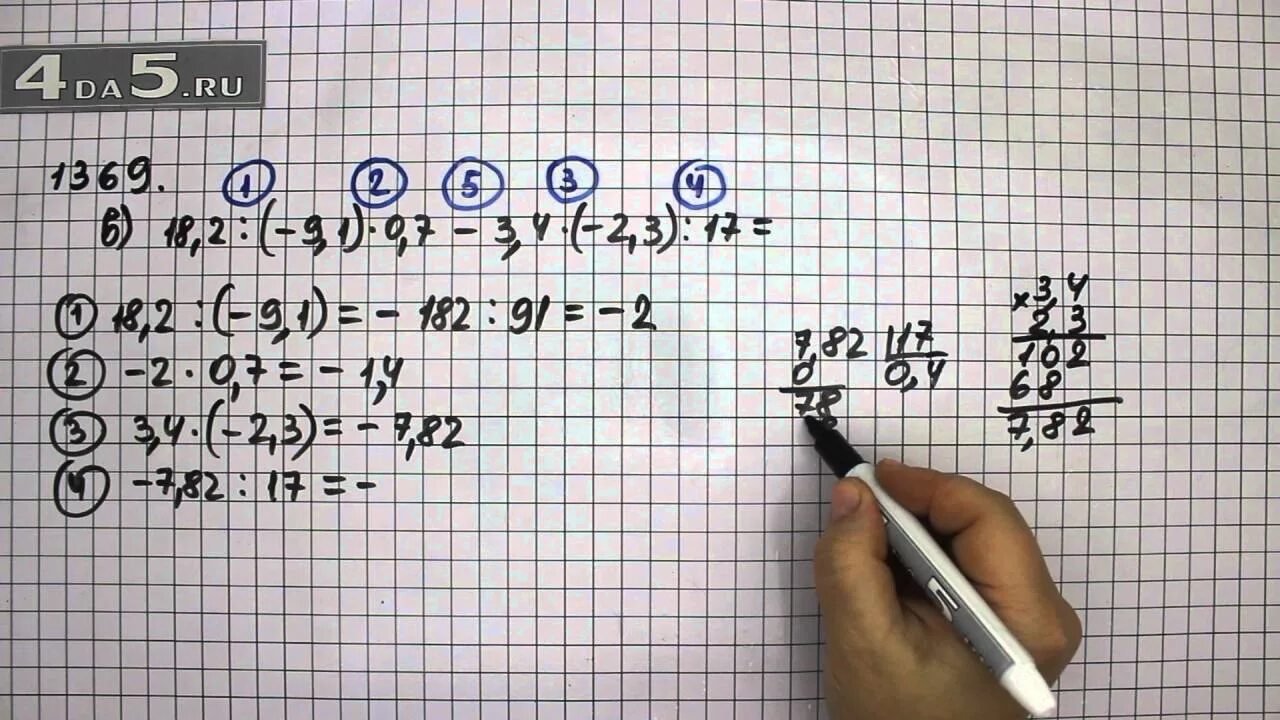 4DA5.RU
1369.
1 2 5 3 4
в) 18,2 : (-9,1) · 0,7 - 3,4 · (-2,3) : 17 =
1 18,2 : (-9,1) = - 182 : 91 = - 2
2 -2 · 0,7 = - 1,4
3 3,4 · (-2,3) = - 7,82
4 -7,82 : 17 = -
7,82 | 17
0 0,4
78
× 3,4
2,3
102
68
7,82